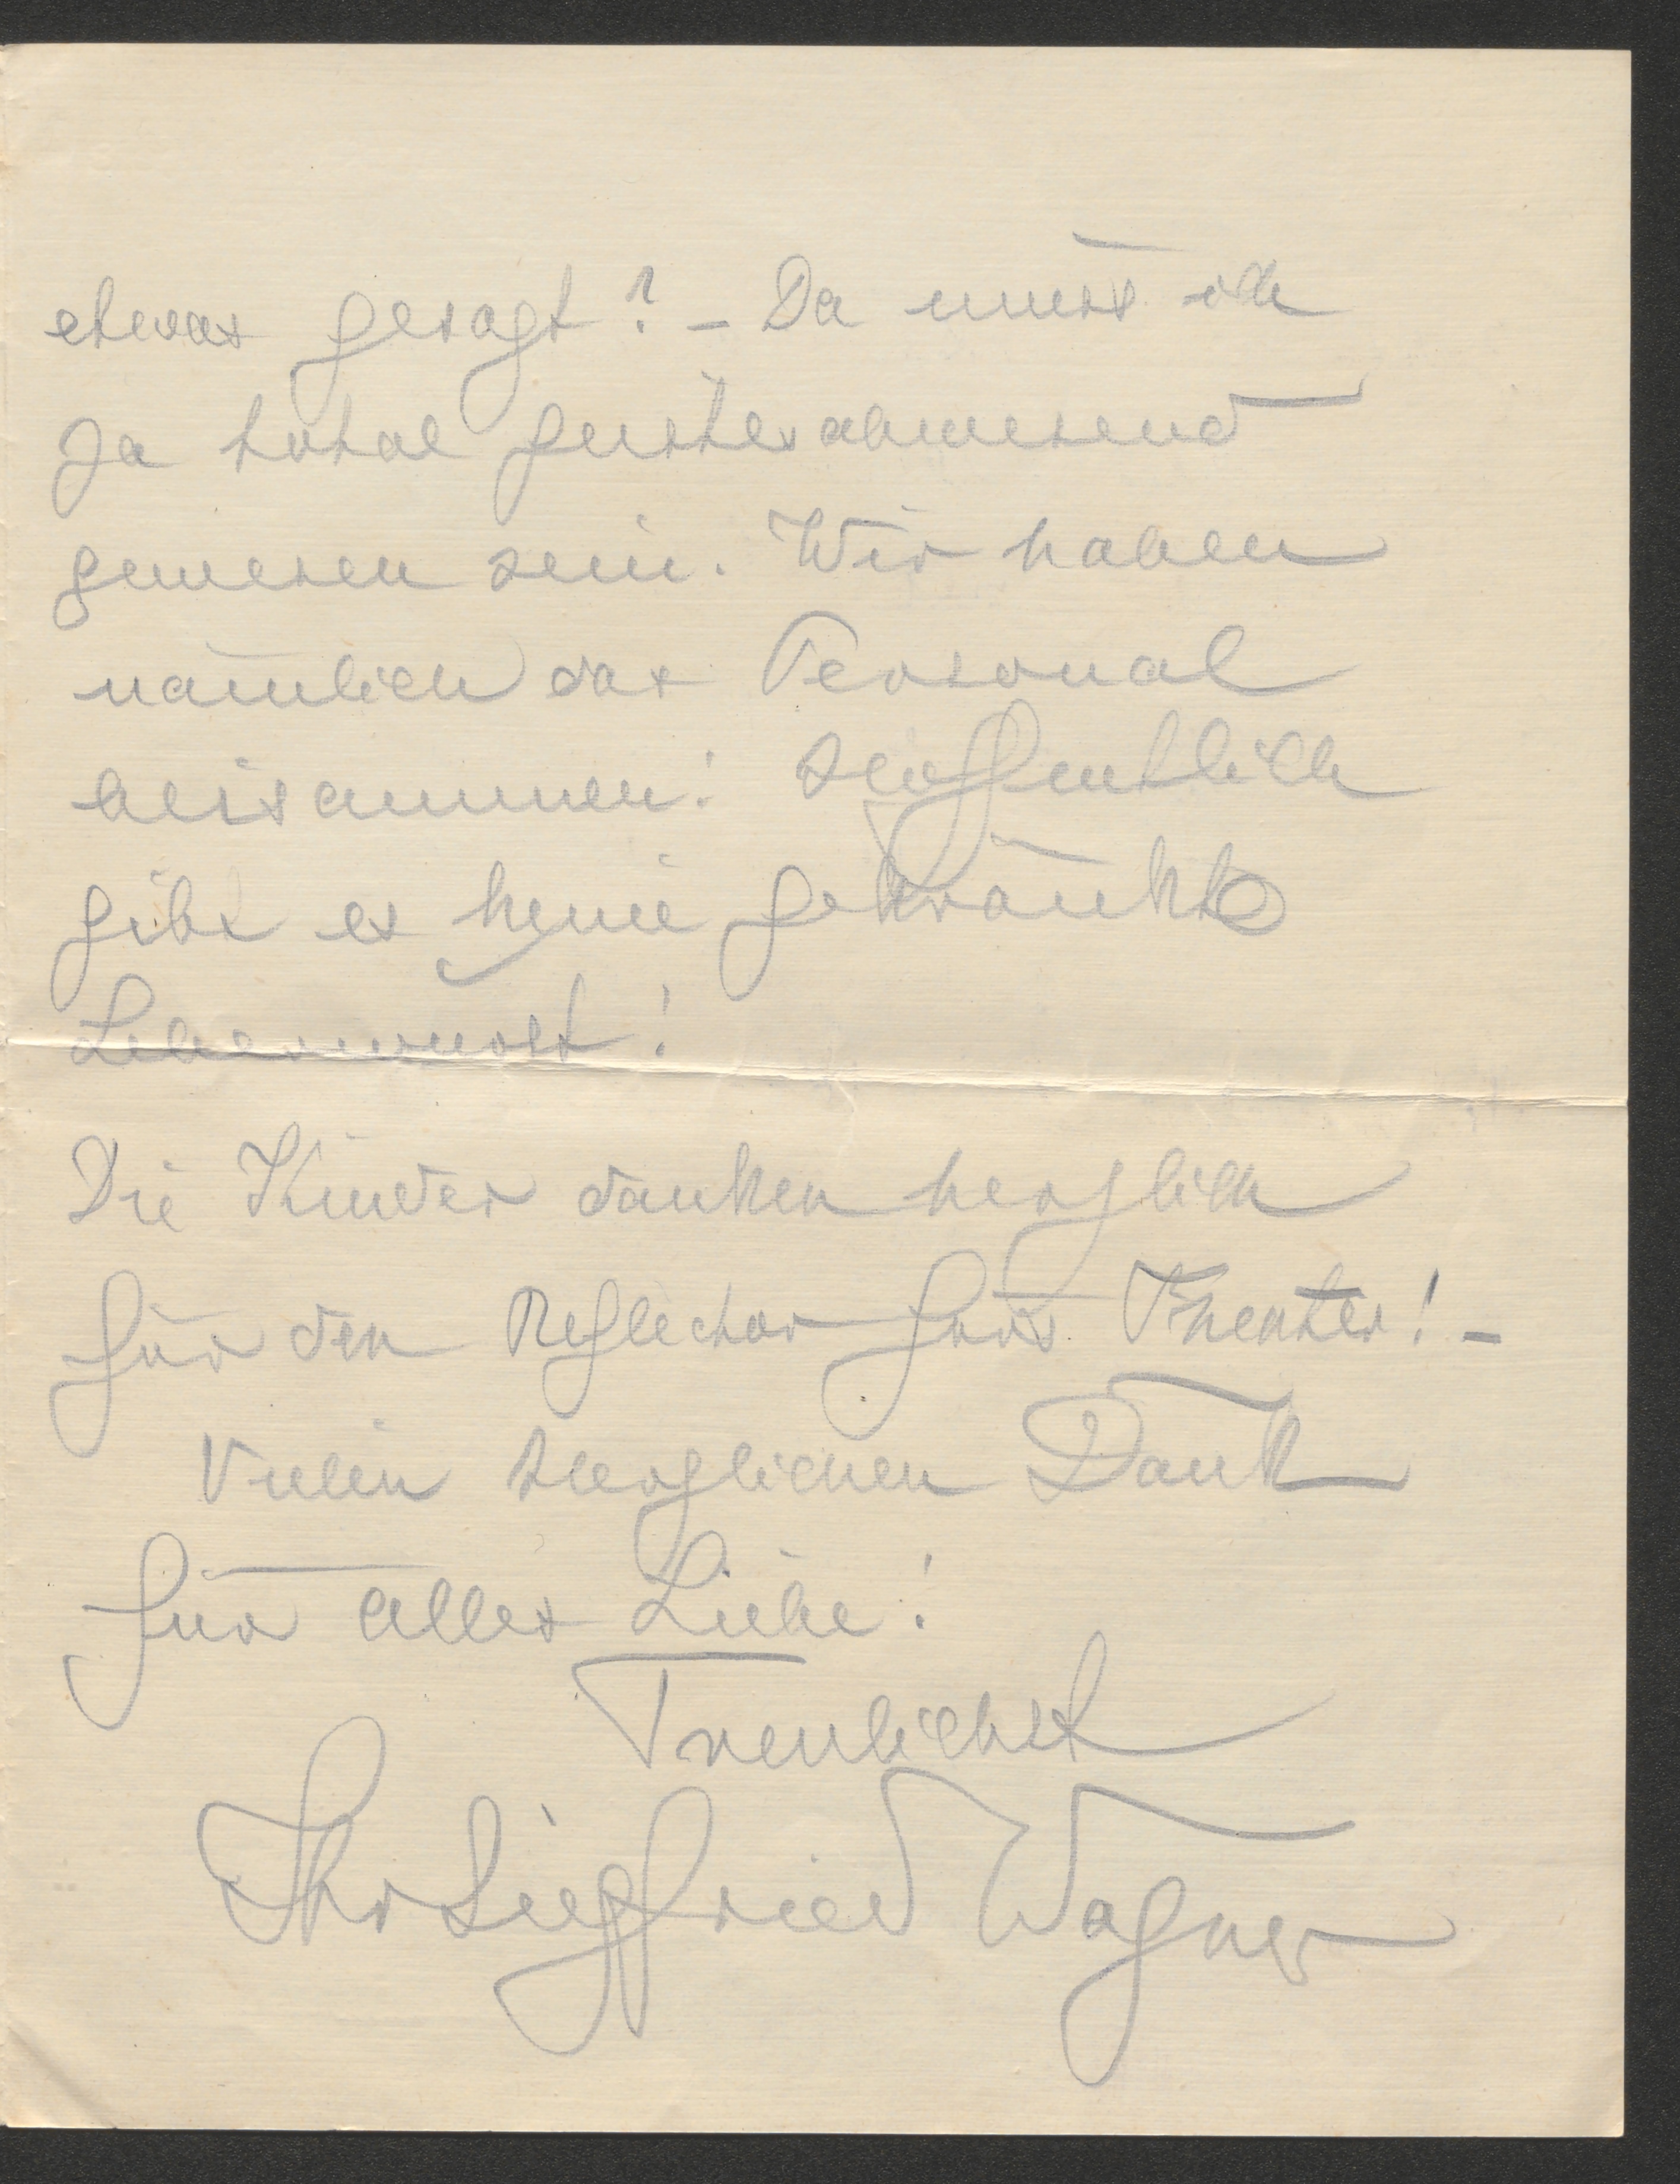 etwas gesagt? – Da muss ich
Ja total geistesabwesend
gewesen sein. Wir haben
nämlich das Personal
beisammen! Hoffentlich
gibt es keine gekränkte
Leberwurst!
Die Kinder danken herzlich
für den Reflector fürs Theater! –
Vielen herzlichen Dank
für alles Liebe!
Treulichst
Ihr Siegfried Wagner